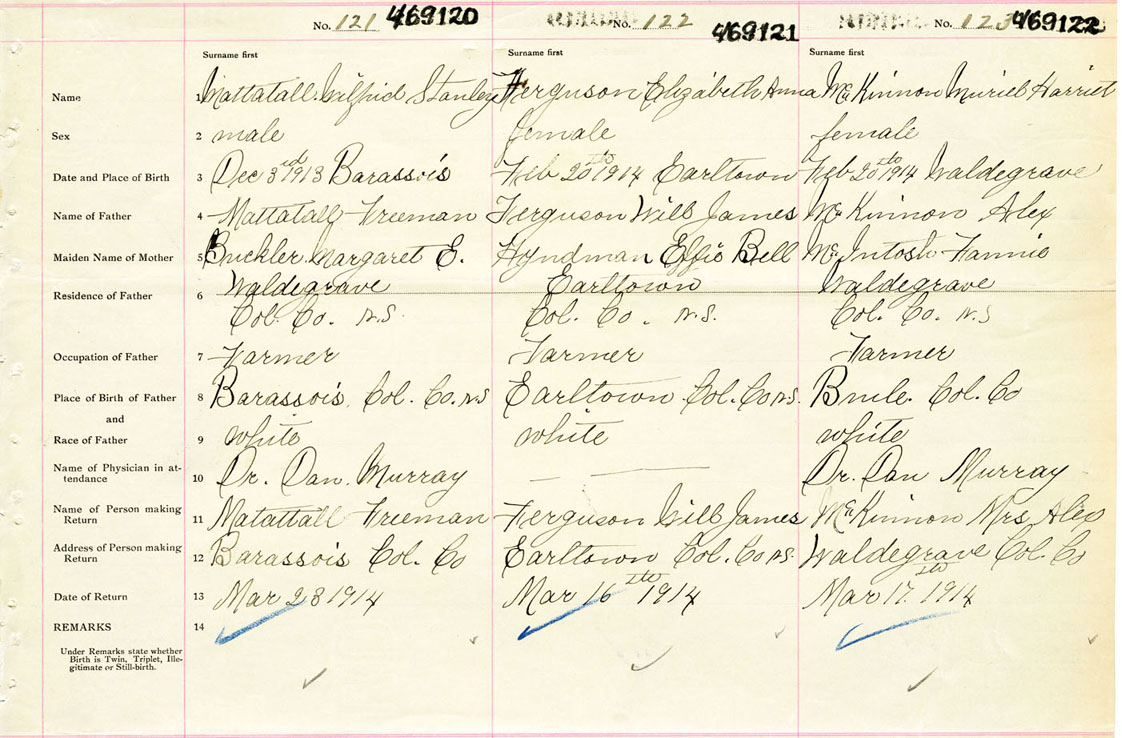 No. 121 469120 No. 122 469121 No. 123 469122
Surname first Surname first Surname first
Name 1 Mattatall Wilfrid Stanley Ferguson Elizabeth Anna McKinnon Muriel Harriet
Sex 2 male female female
Date and Place of Birth 3 Dec 3rd 1913 Barassois Feb 20th 1914 Earltown Feb 20th 1914 Waldegrave
Name of Father 4 Mattatall Freeman Ferguson Will James McKinnon Alex
Maiden Name of Mother 5 Buckler Margaret E. Hyndman Effie Bell McIntosh Fannie
Residence of Father 6 Waldegrave Earltown Waldegrave
Col. Co. N.S. Col. Co. N.S. Col. Co. N.S
Occupation of Father 7 Farmer Farmer Farmer
Place of Birth of Father 8 Barassois Col. Co. N.S Earltown Col. Co N.S. Brule. Col. Co
and
Race of Father 9 white white white
Name of Physician in at-
tendance 10 Dr. Dan. Murray — — Dr. Dan Murray
Name of Person making
Return 11 Matattall Freeman Ferguson Will James McKinnon Mrs Alex
Address of Person making
Return 12 Barassois Col. Co Earltown Col. Co N.S. Waldegrave Col. Co
Date of Return 13 Mar 28 1914 Mar 16th 1914 Mar 17th 1914
REMARKS 14
Under Remarks state whether
Birth is Twin, Triplet, Ille-
gitimate or Still-birth.